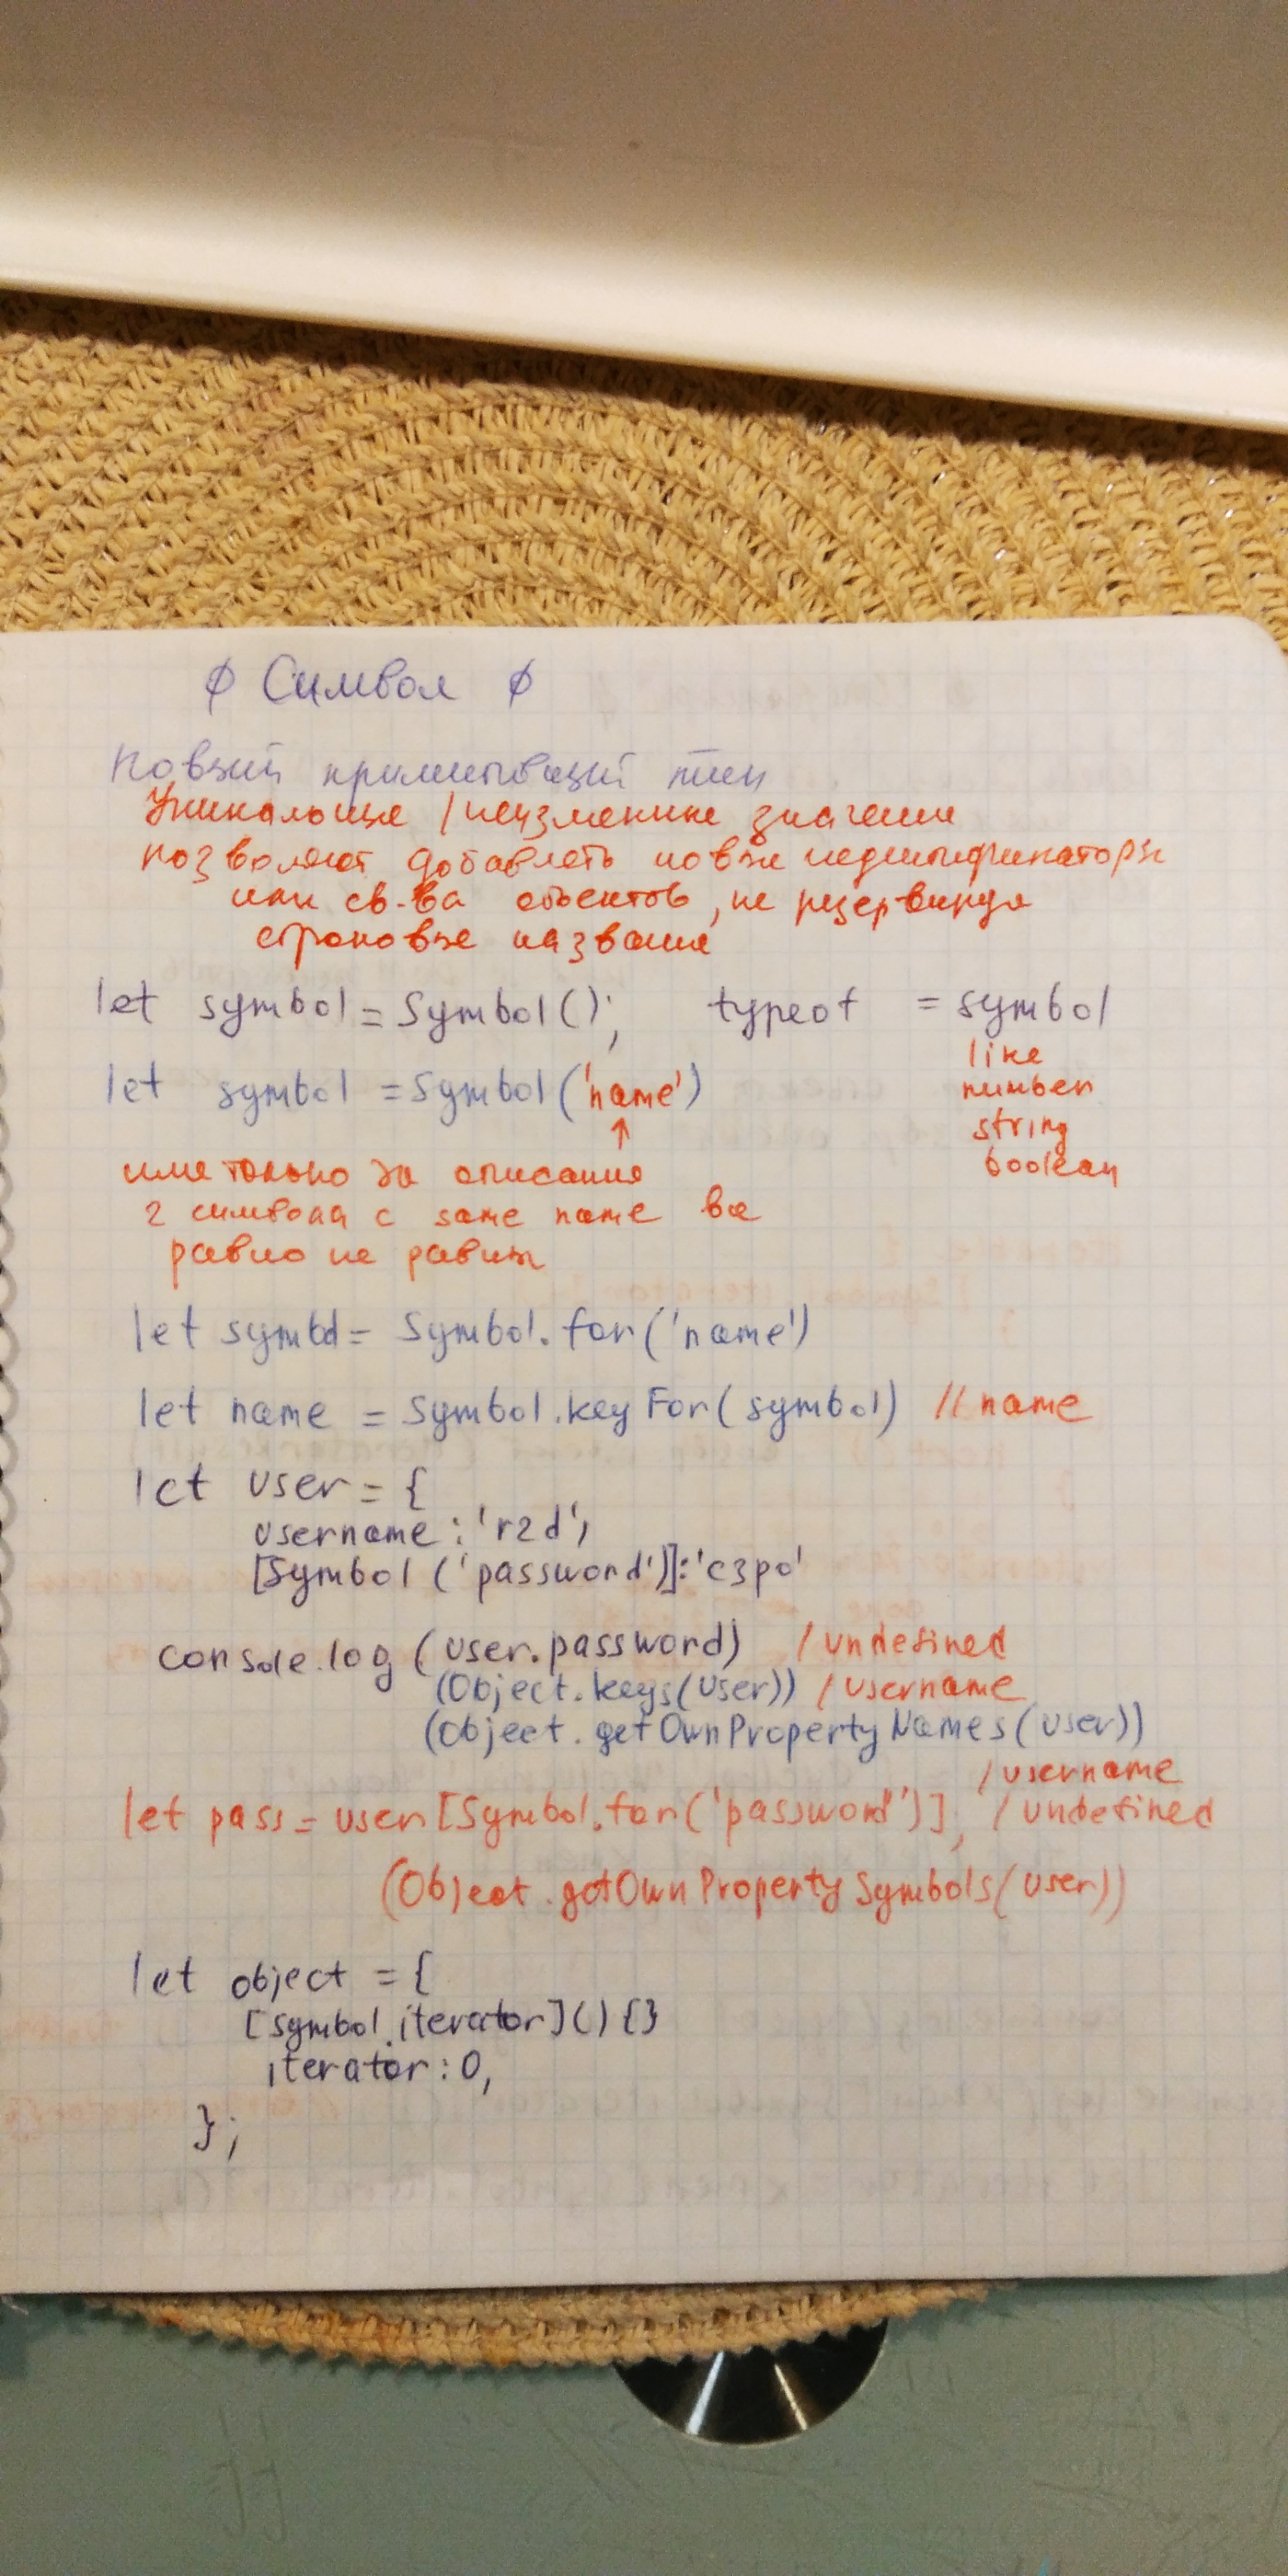 ∅ Символ ∅
Новый примитивный тип
Уникальные / неизменные значения
позволяют добавлять новые идентификаторы
или св-ва объектов, не резервируя
строковые названия
let symbol = Symbol(); typeof = symbol
like
number
string
boolean
let symbol = Symbol('name')
↑
имя только за описания
2 символа с same name все
равно не равны
let symbol = Symbol.for('name')
let name = Symbol.keyFor(symbol) // name
let user = {
username: 'r2d',
[Symbol('password')]: 'c3po'
console.log (user.password) / undefined
(Object.keys(user)) / username
(Object.getOwnPropertyNames(user))
/ username
let pass = user[Symbol.for('password')]; / undefined
(Object.getOwnPropertySymbols(user))
let object = {
[symbol.iterator]() {}
iterator: 0,
};